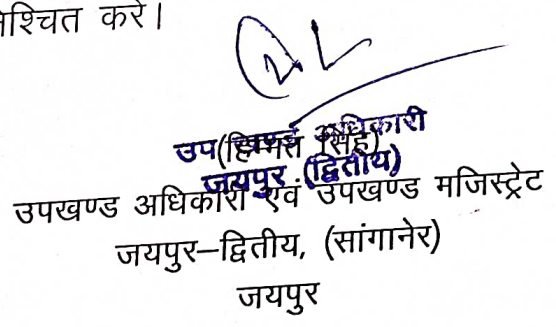 श्चित करे।
उप खण्ड अधिकारी
(हिम्मत सिंह)
जयपुर (द्वितीय)
उपखण्ड अधिकारी एवं उपखण्ड मजिस्ट्रेट
जयपुर–द्वितीय, (सांगानेर)
जयपुर